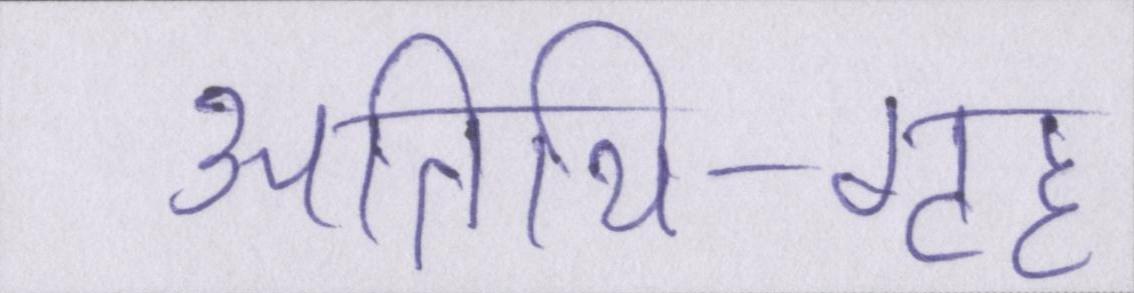 अतिथि-गृह